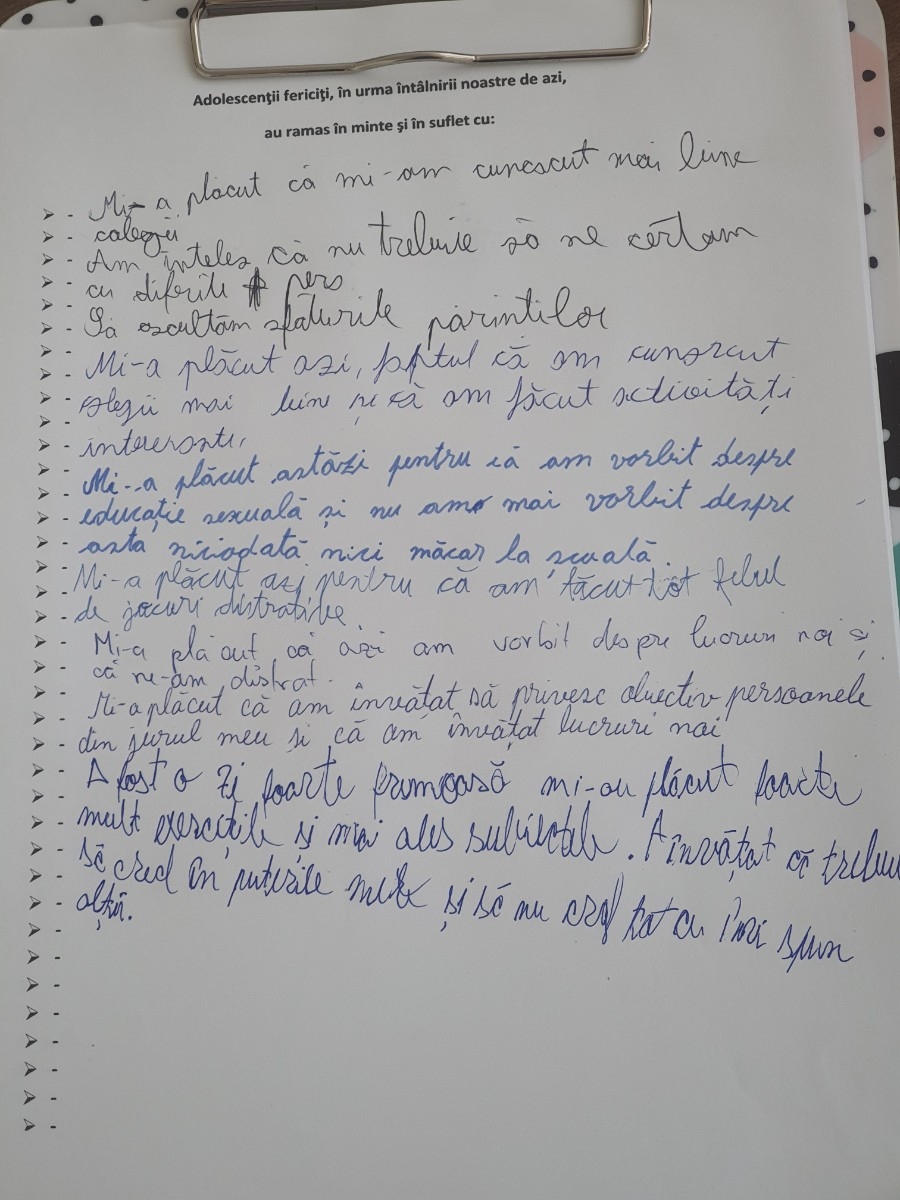 Adolescenţii fericiţi, în urma întâlnirii noastre de azi,
au ramas în minte şi în suflet cu:
Mi-a plăcut că mi-am cunescut mai bine
colegii
Am înteles că nu trebuie să ne certam
cu diferite pers
Să ascultăm sfaturile parintilor
Mi-a plăcut azi, faptul că am cunoscut
colegii mai bine și că am făcut activități
interesante,
Mi-a plăcut astăzi pentru că am vorbit despre
educație sexuală și nu am mai vorbit despre
asta niciodată nici măcar la școală.
Mi-a plăcut azi pentru că am făcut tot felul
de jocuri distratibe.
Mi-a plăcut că azi am vorbit despre lucruri noi și
că ne-am distrat.
Mi-a plăcut că am învățat să privesc obiectiv persoanele
din jurul meu și că am învățat lucruri noi
A fost o zi foarte frumoasă mi-au plăcut foarte
mult exercițiile și mai ales subiectele. A învățat că trebuie
să cred în puterile mele și să nu cred tot ce îmi spun
alții.